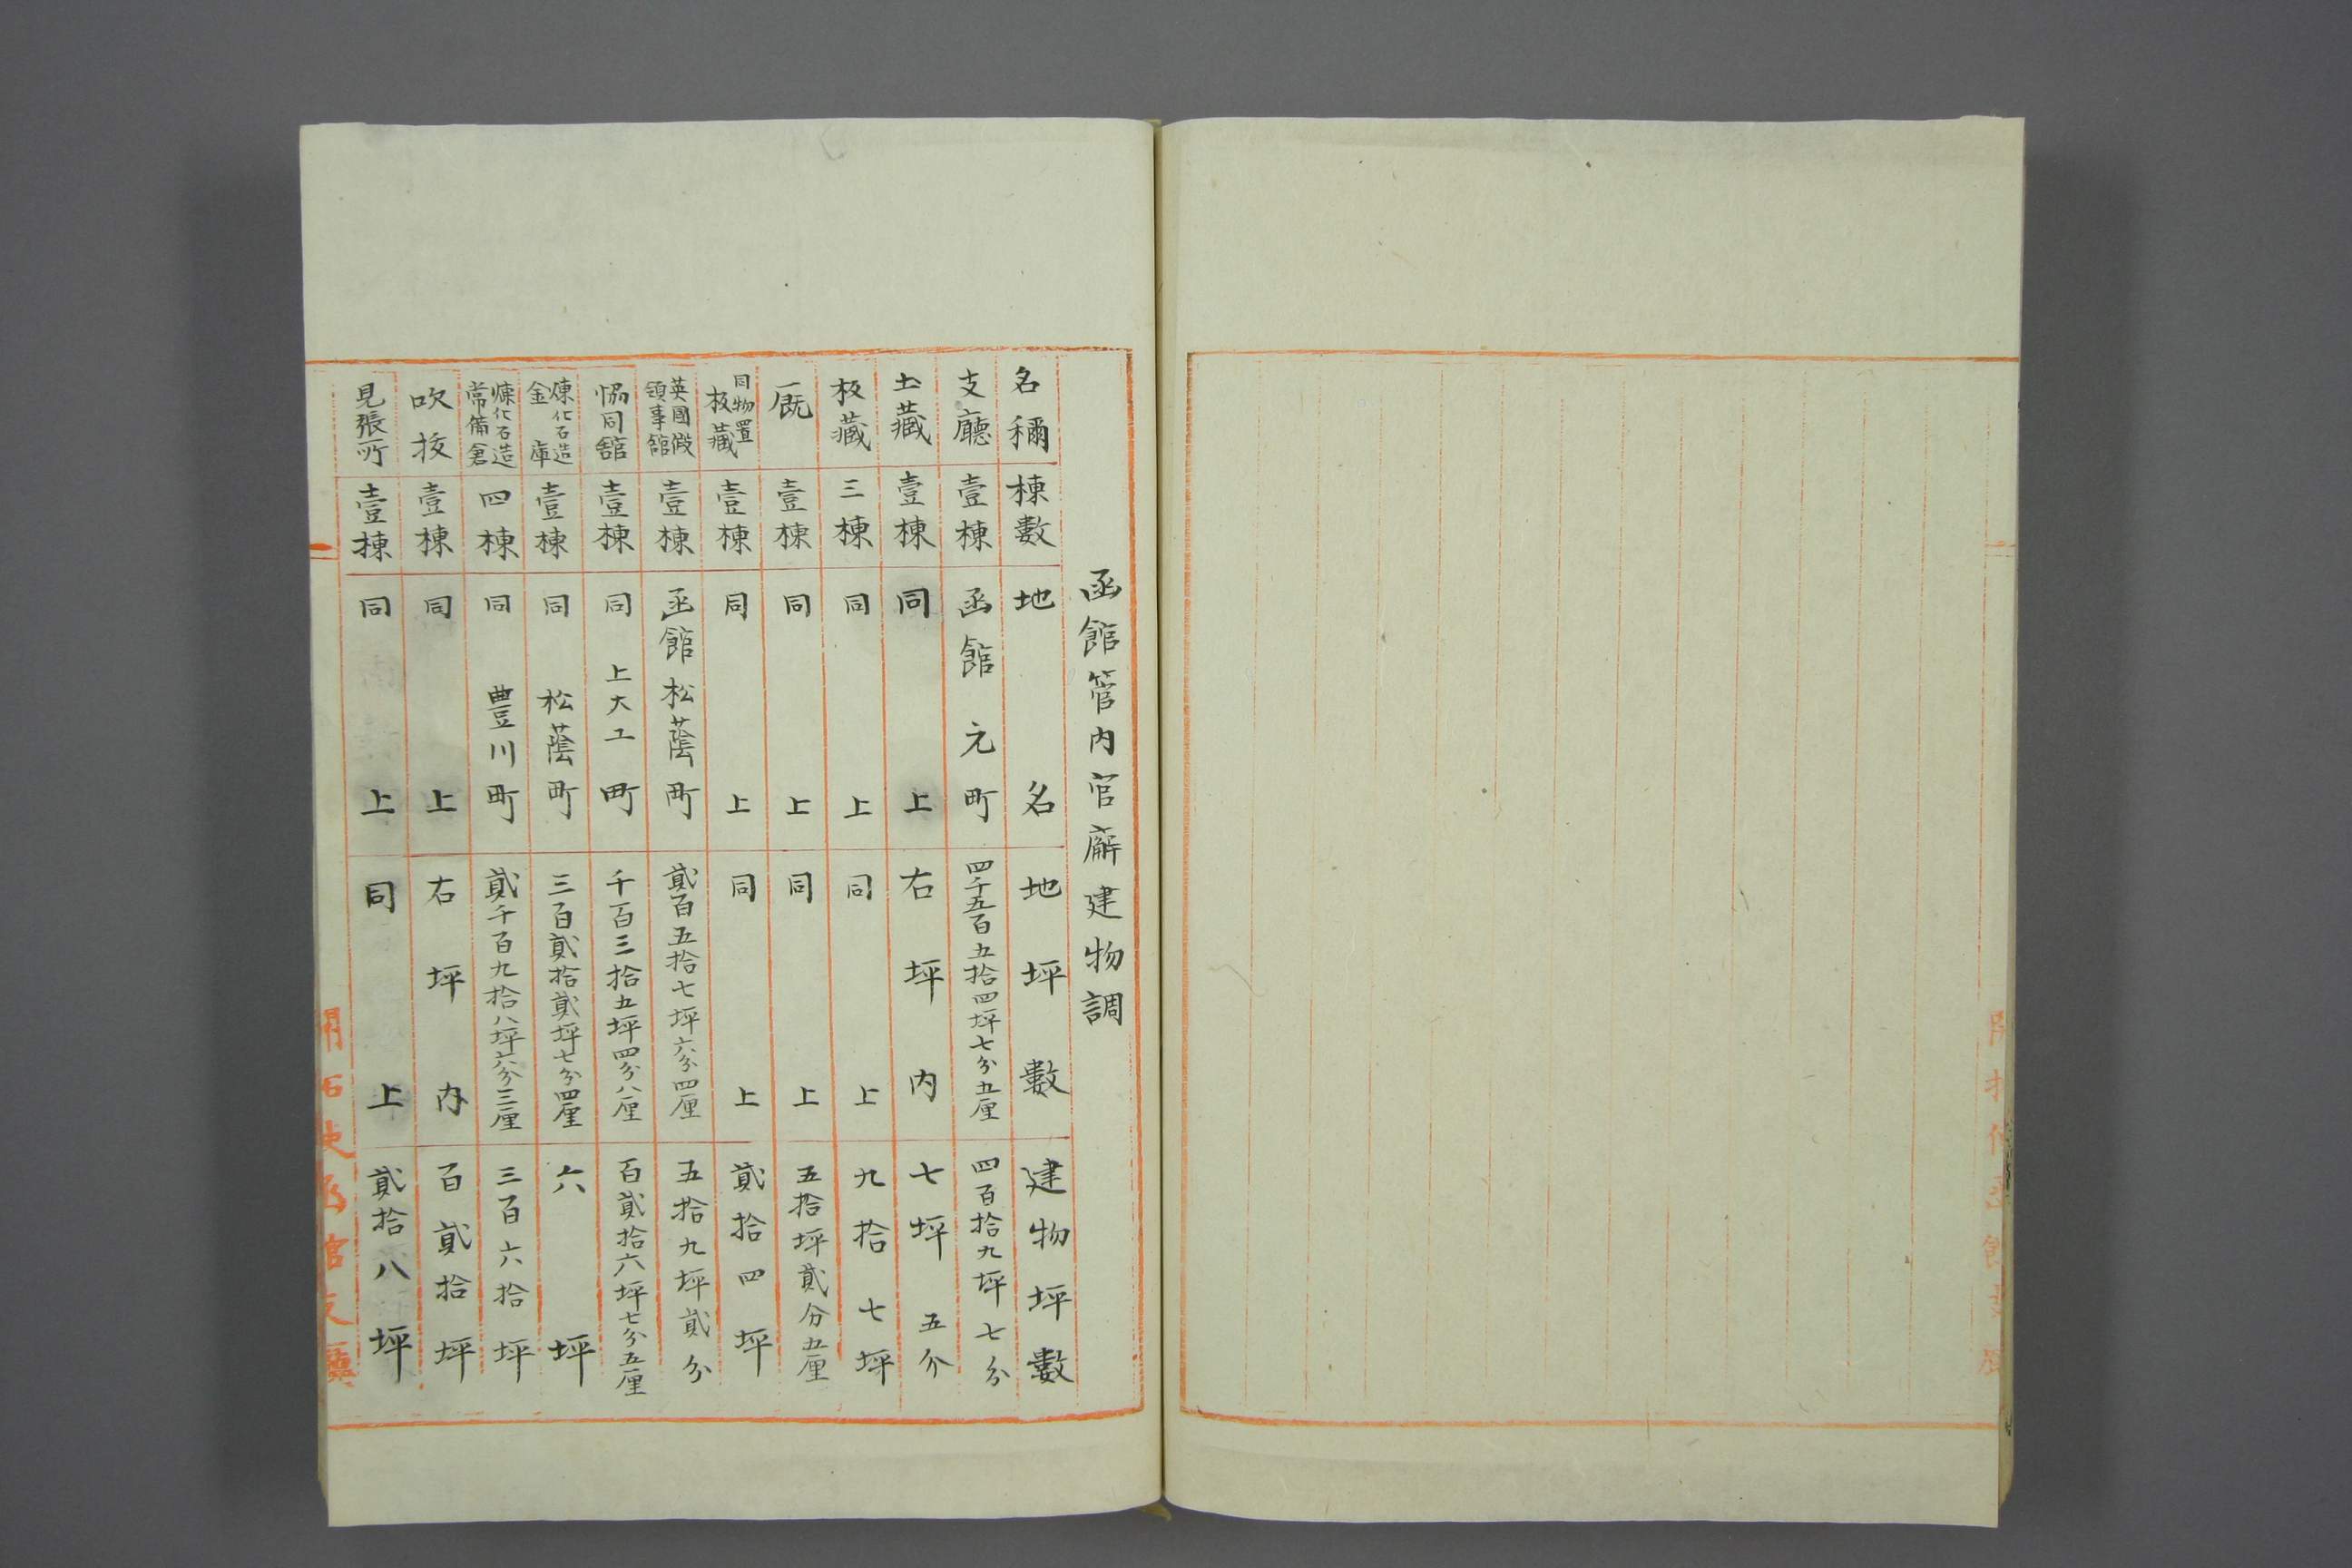 函館管内官廨建物調
名稱 棟數 地名 地坪數 建物坪數
支廳 壹棟 函館元町 四千五百五拾四坪七分五厘 四百拾九坪七分
土藏 壹棟 同上 右坪内 七坪五分
板藏 三棟 同上 同上 九拾七坪
厩 壹棟 同上 同上 五拾坪貳分五厘
同物置板藏 壹棟 同上 同上 貳拾四坪
英國假領事館 壹棟 函館松蔭町 貳百五拾七坪六分四厘 五拾九坪貳分
協同館 壹棟 同上大工町 千百三拾五坪四分八厘 百貳拾六坪七分五厘
煉化石造金庫 壹棟 同松蔭町 三百貳拾貳坪七分四厘 六坪
煉化石造常備倉 四棟 同豊川町 貳千百九拾八坪六分三厘 三百六拾坪
吹抜 壹棟 同上 右坪内 百貳拾坪
見張所 壹棟 同上 同上 貳拾八坪
開拓使函館支廳